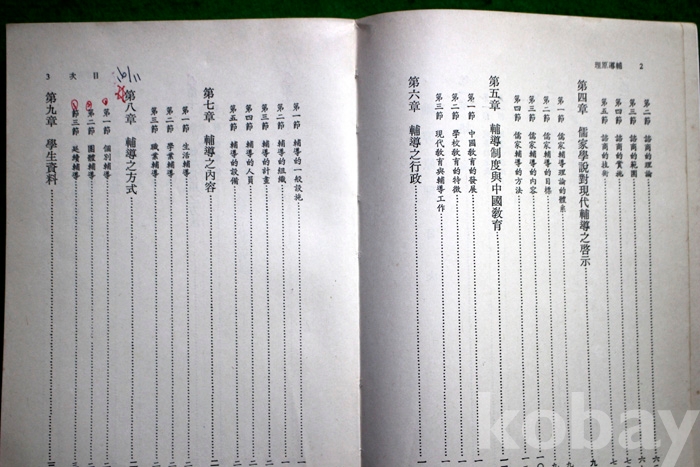 輔導原理 2
第二節 諮商的理論
第三節 諮商的範圍
第四節 諮商的實施
第五節 諮商的技術
第四章 儒家學說對現代輔導之啓示
第一節 儒家輔導理論的體系
第二節 儒家輔導的目標
第三節 儒家輔導的內容
第四節 儒家輔導的方法
第五章 輔導制度與中國教育
第一節 中國教育的發展
第二節 學校教育的特徵
第三節 現代教育與輔導工作
第六章 輔導之行政
3 目次
第一節 輔導的一般設施
第二節 輔導的組織
第三節 輔導的計畫
第四節 輔導的人員
第五節 輔導的設備
第七章 輔導之內容
第一節 生活輔導
第二節 學業輔導
第三節 職業輔導
10/11
第八章 輔導之方式
第一節 個別輔導
第二節 團體輔導
第三節 延續輔導
第九章 學生資料
kobay